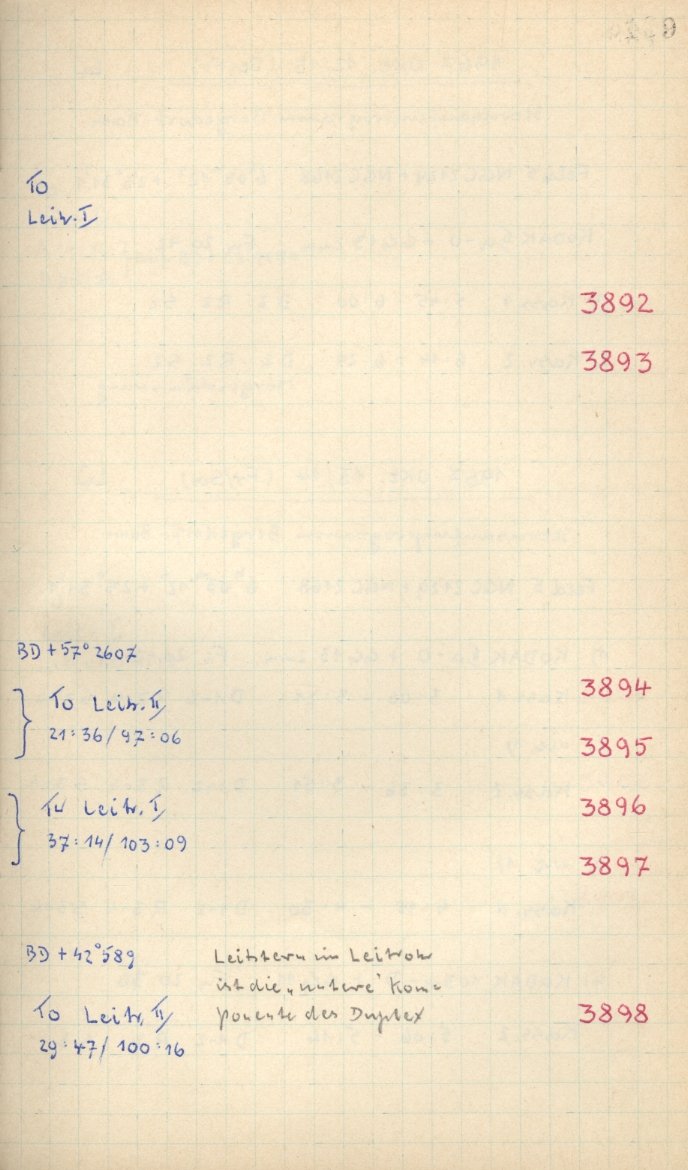 To
Leitr. I
3892
3893
BD + 57° 2607
3894
To Leitr. II
21 : 36 / 97 : 06
3895
Tu Leitr. I
3896
37 : 14 / 103 : 09
3897
BD + 42° 589
Leitstern im Leitrohr
ist die „untere“ Kom-
To Leitr. II ponente des Duplex 3898
29 : 47 / 100 : 16